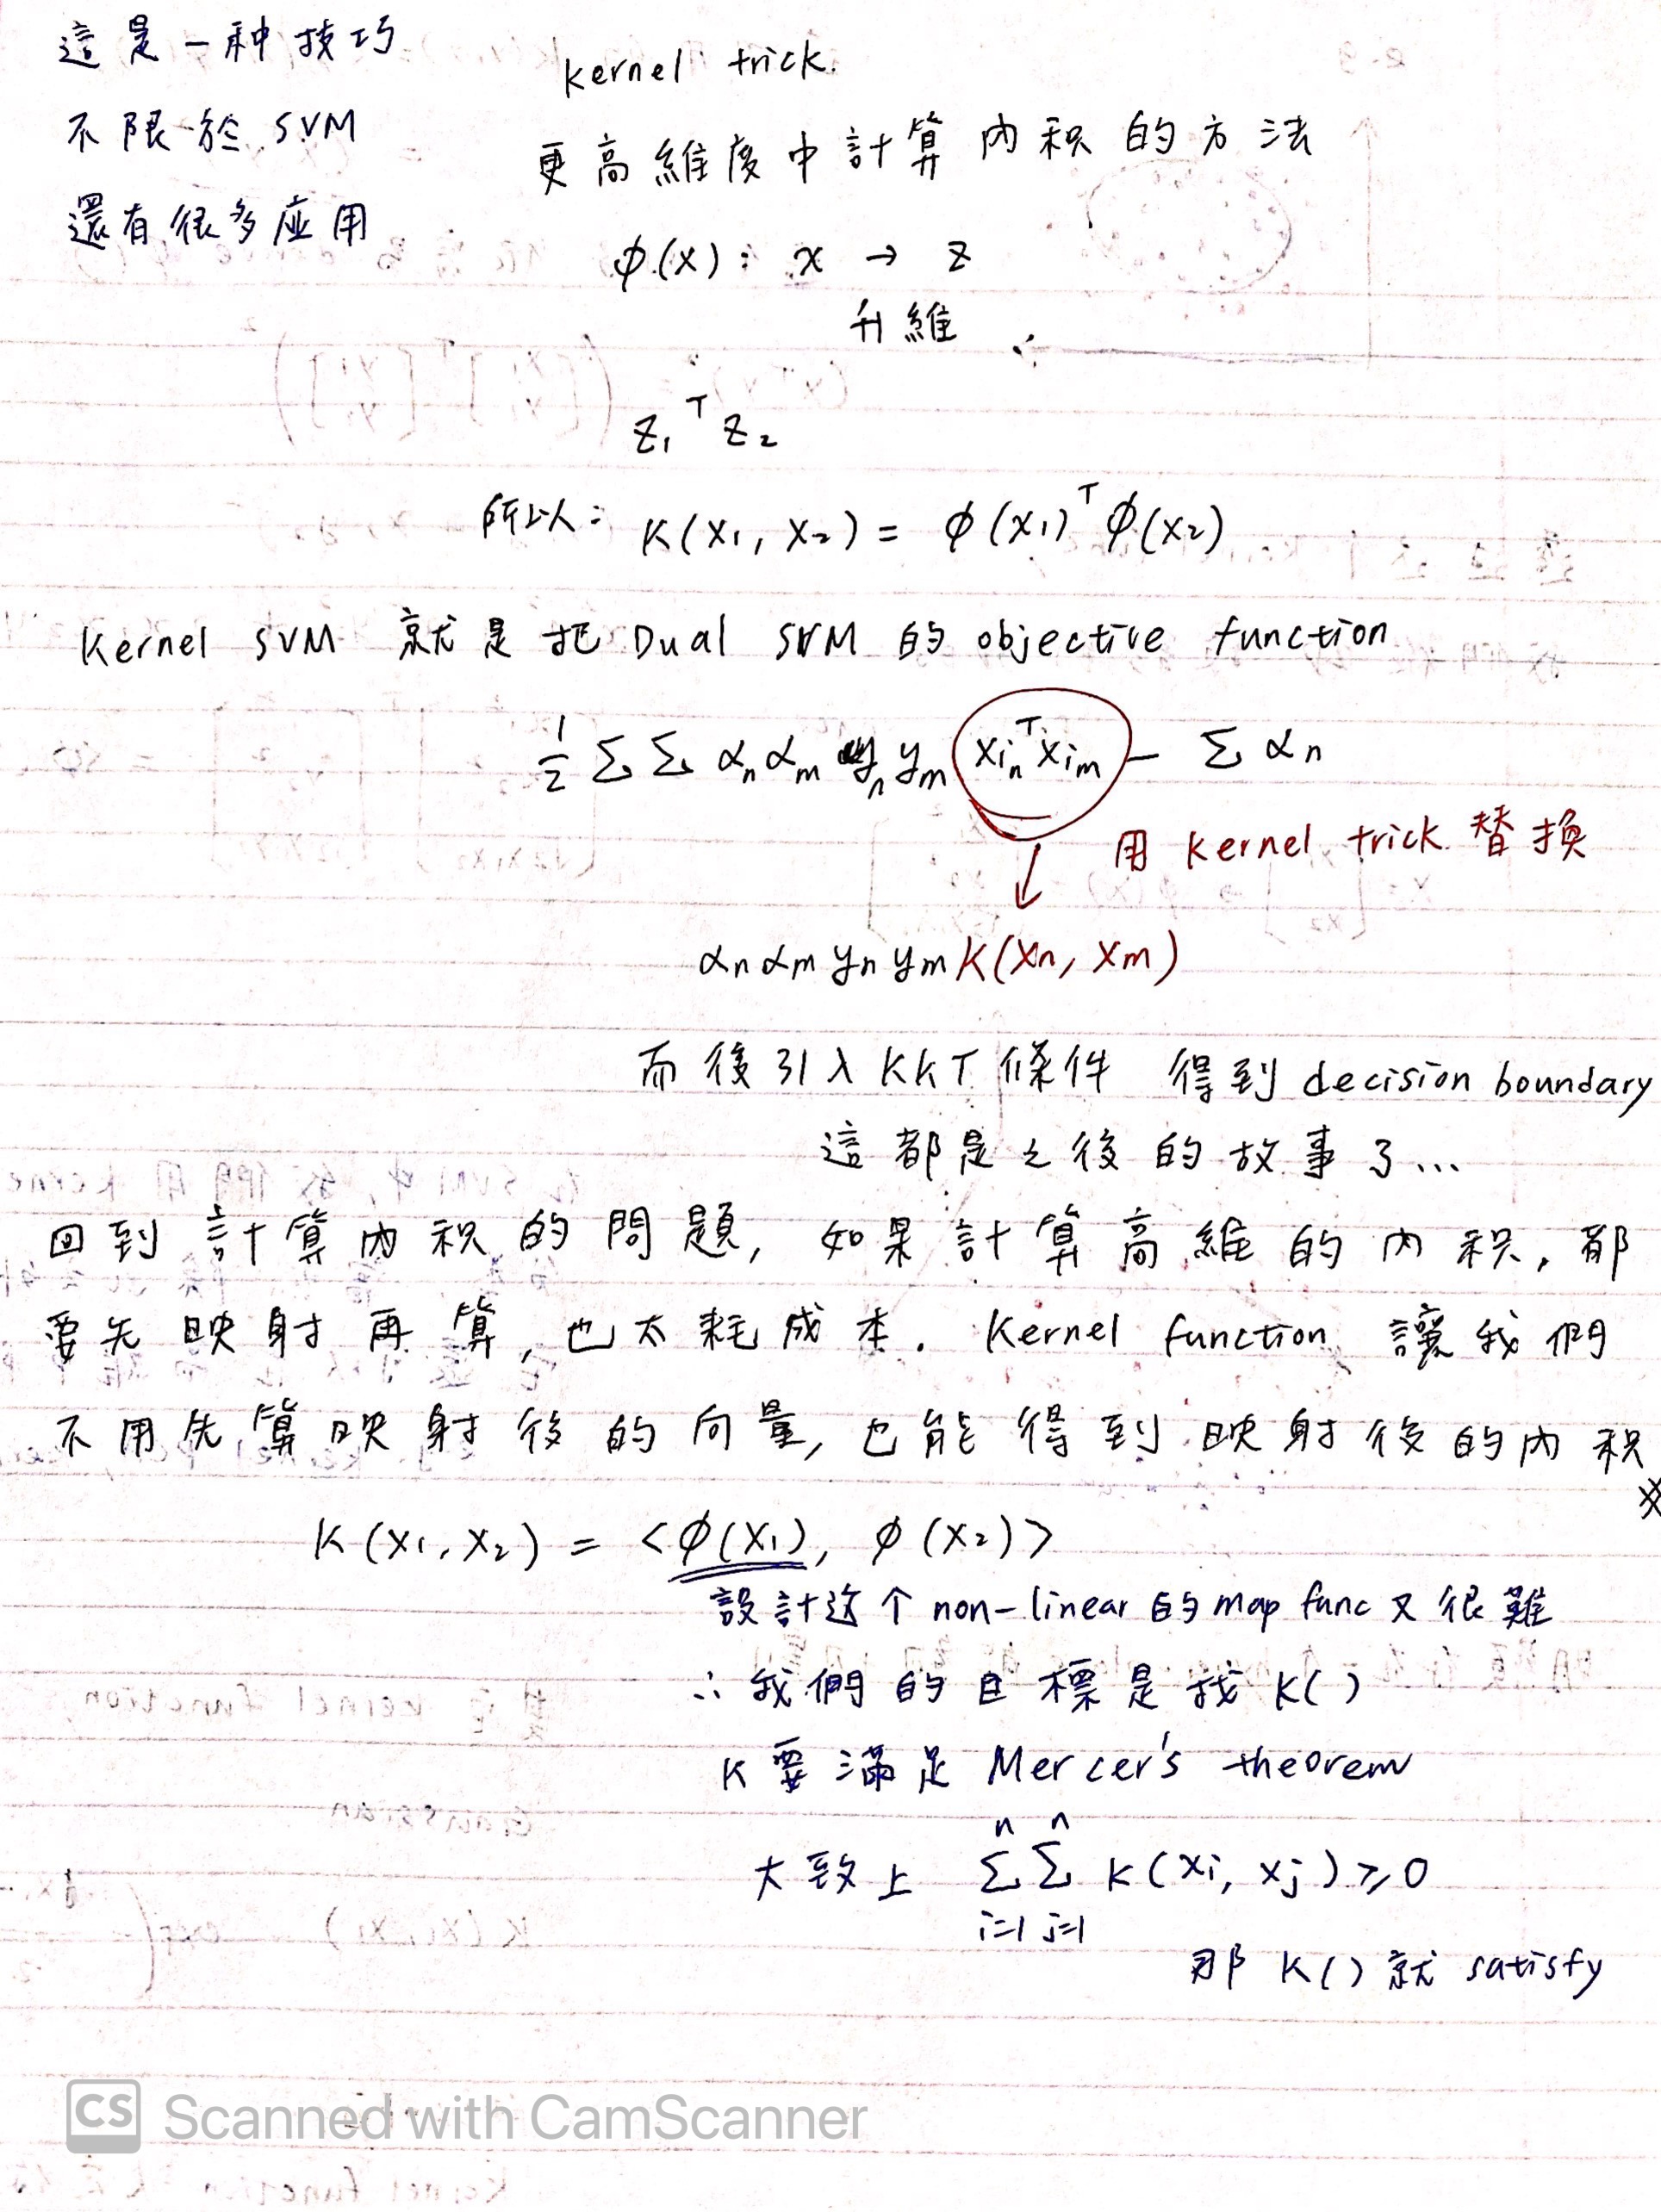 這是一种技巧
不限於 SVM
還有很多应用
kernel trick.
更高維度中計算內积的方法
ϕ(x): x → z
升維
z₁ᵀ z₂
所以: K(x₁, x₂) = ϕ(x₁)ᵀ ϕ(x₂)
Kernel SVM 就是把 Dual SVM 的 objective function
½ Σ Σ αₙ αₘ yₙ yₘ xiₙᵀ xiₘ - Σ αₙ
用 kernel trick 替換
αₙ αₘ yₙ yₘ K(xₙ, xₘ)
而後引入 KKT 條件 得到 decision boundary
這都是之後的故事了...
回到計算內积的問題, 如果計算高維的內积, 都
要先映射再算, 也太耗成本. Kernel function 讓我們
不用先算映射後的向量, 也能得到映射後的內积
K(x₁, x₂) = <ϕ(x₁), ϕ(x₂)>
設計这个 non-linear 的 map func 又很難
∴ 我們的目標是找 K()
K 要滿足 Mercer's theorem
大致上 Σⁿᵢ₌₁ Σⁿⱼ₌₁ K(xi, xj) ≥ 0
那 K() 就 satisfy
CS Scanned with CamScanner